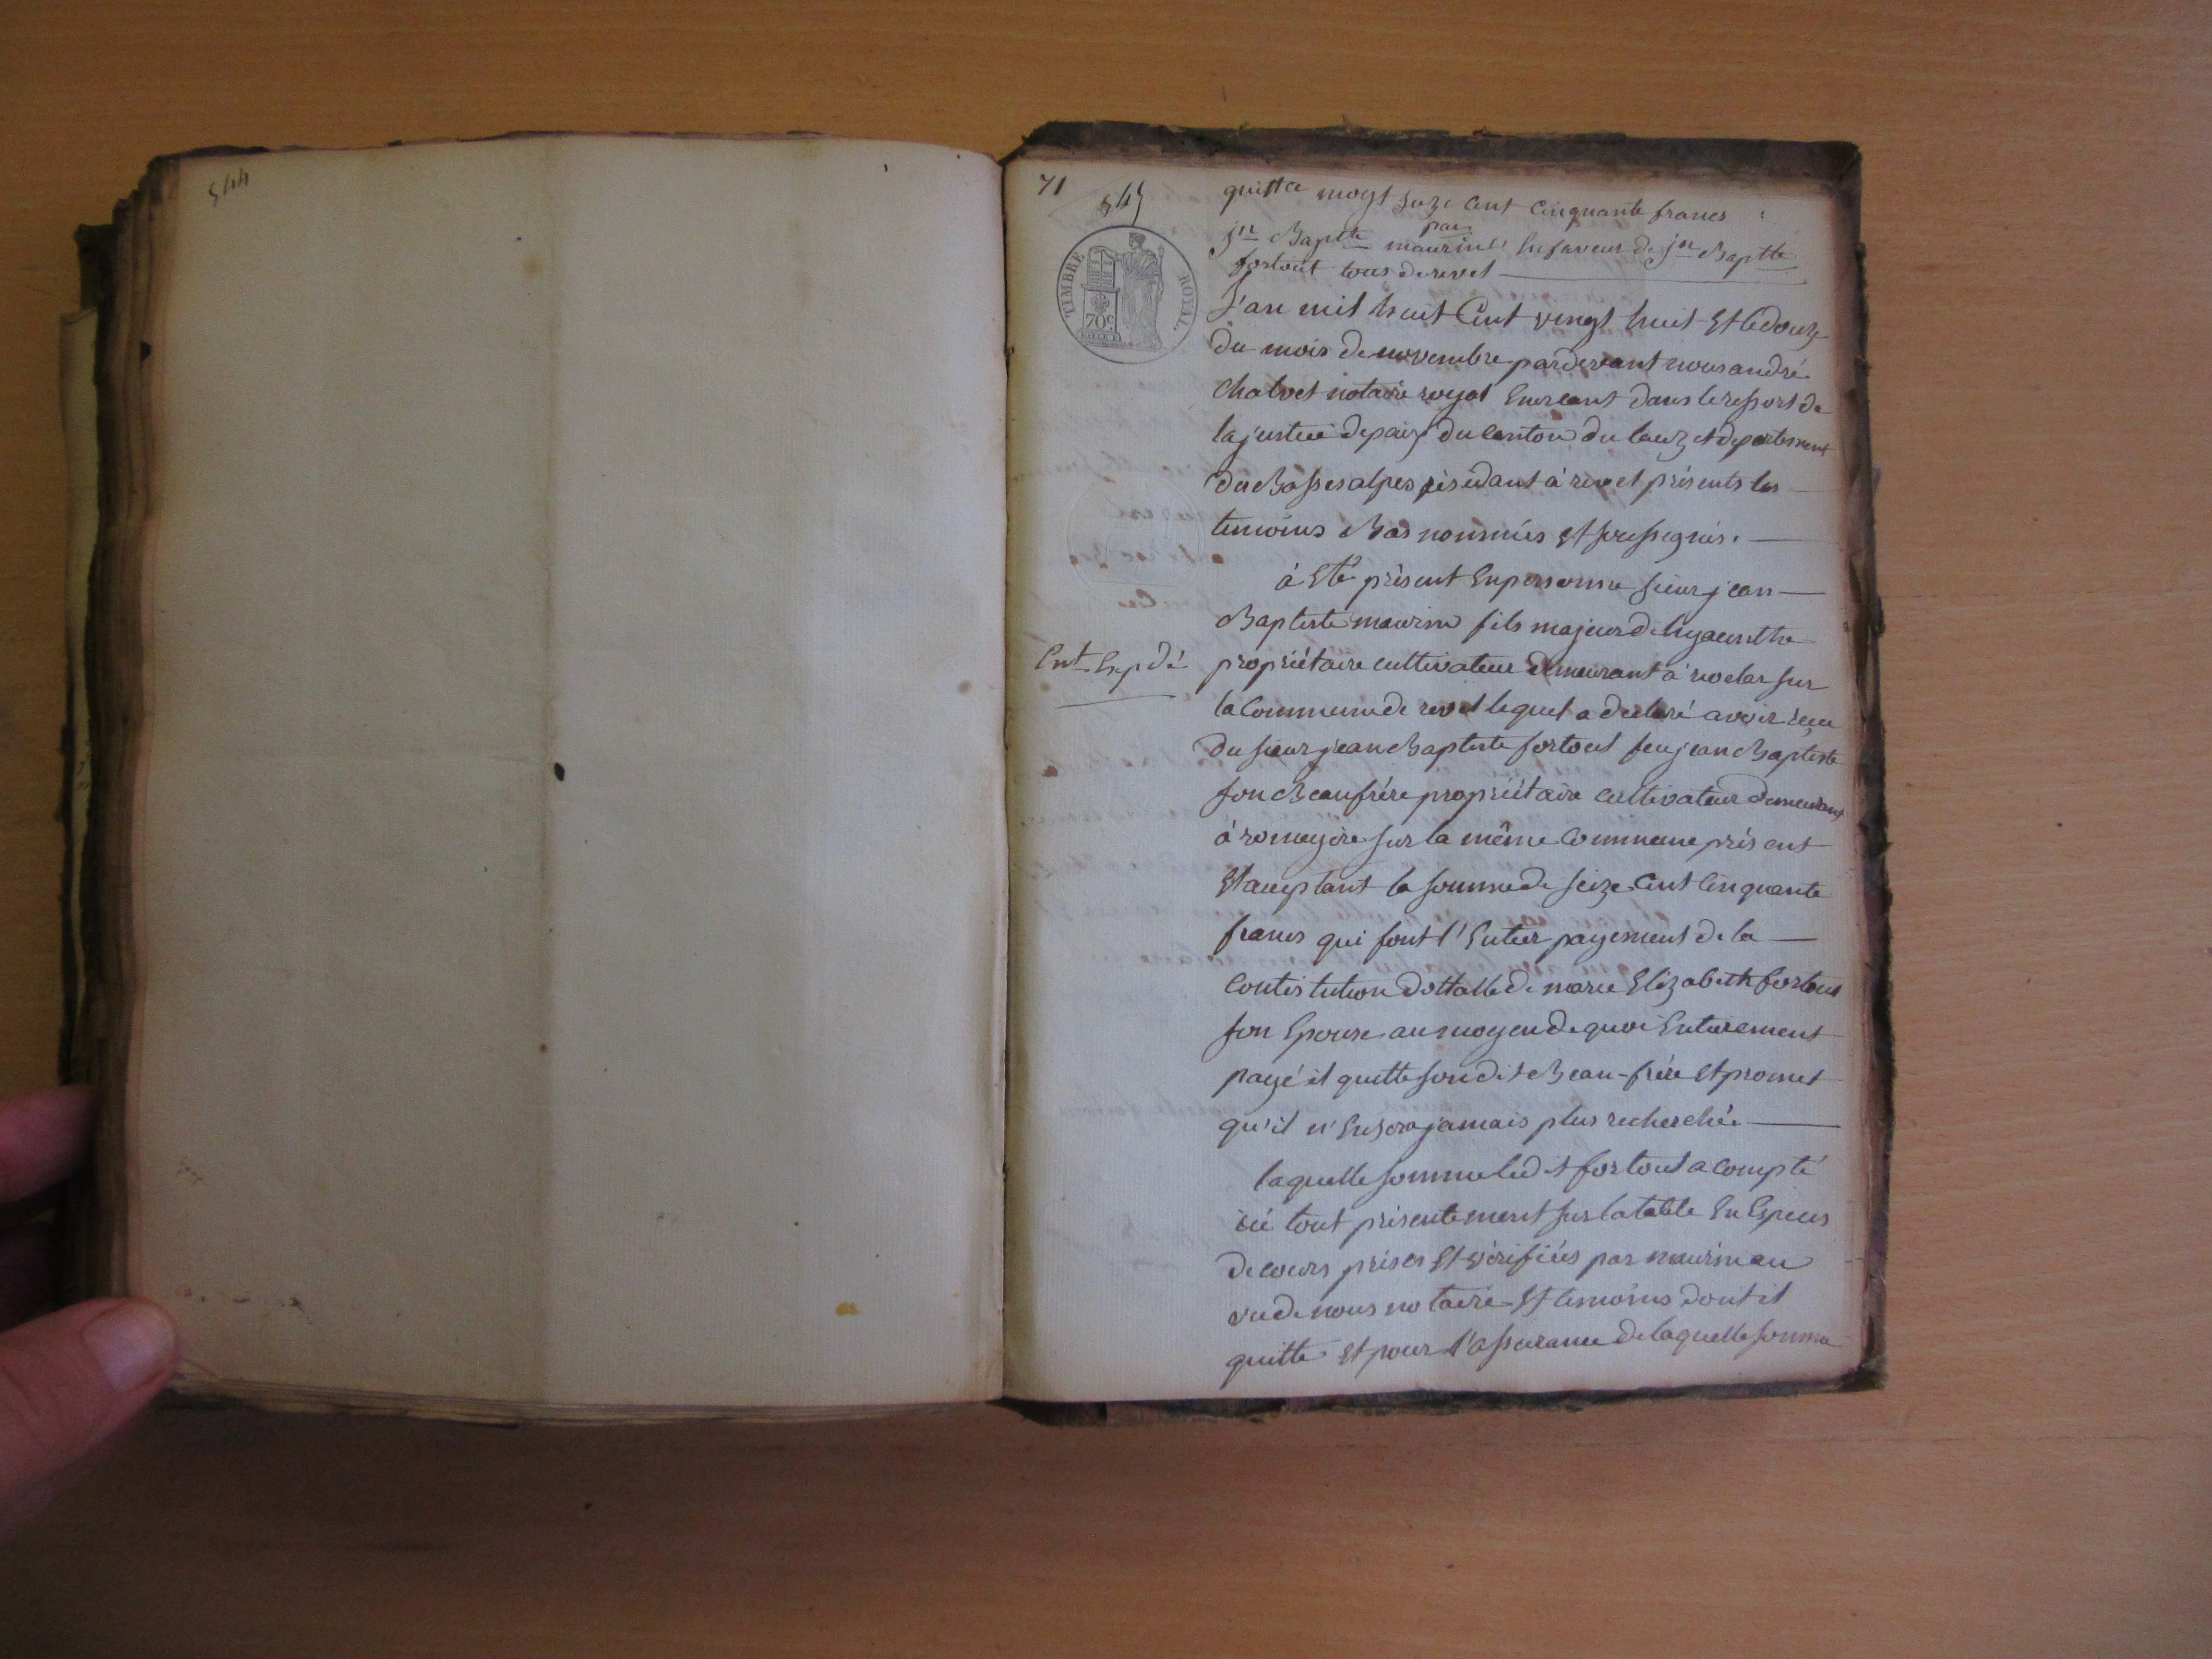 544
71
545
quittce moyt seize cent cinquante francs
par
Jn Baptte maurin en faveur de jn Baptte
fortout tous de revel
TIMBRE ROYAL.
70c
L'an mil huit Cent vingt huit Et le douze
du mois de novembre pardevant nous andré
Chalvet notaire royal Exerceant dans le ressort de
la justice de paix du canton du lauzet departement
des Basses alpes résidant à revel présents les
temoins Bas nommés et soussignés.
à Eté présent En personne sieur jean
Baptiste maurin fils majeur de hyacinthe
Ent. Exp dé
propriétaire cultivateur demeurant à rioclar sur
la Commune de revel lequel a declaré avoir reçu
du sieur jean Baptiste fortout feu jean Baptiste
son Beaufrére propriétaire cultivateur demeurant
à romeyére sur la même Commune présent
Et acceptant la somme de seize Cent Cinquante
francs qui font l'Entier payement de la
Contistution dottalle de marie Elizabeth fortout
son Epouse au moyen de quoi Entierement
payé il quitte son dit Beau-frére Et promet
qu'il n'En sera jamais plus recherché
laquelle somme ledit fortout a compté
ici tout présentement sur la table En Espéces
de cours prises Et vérifiées par maurin au
vu de nous notaire Et temoins dont il
quitte Et pour l'assurance de laquelle somme